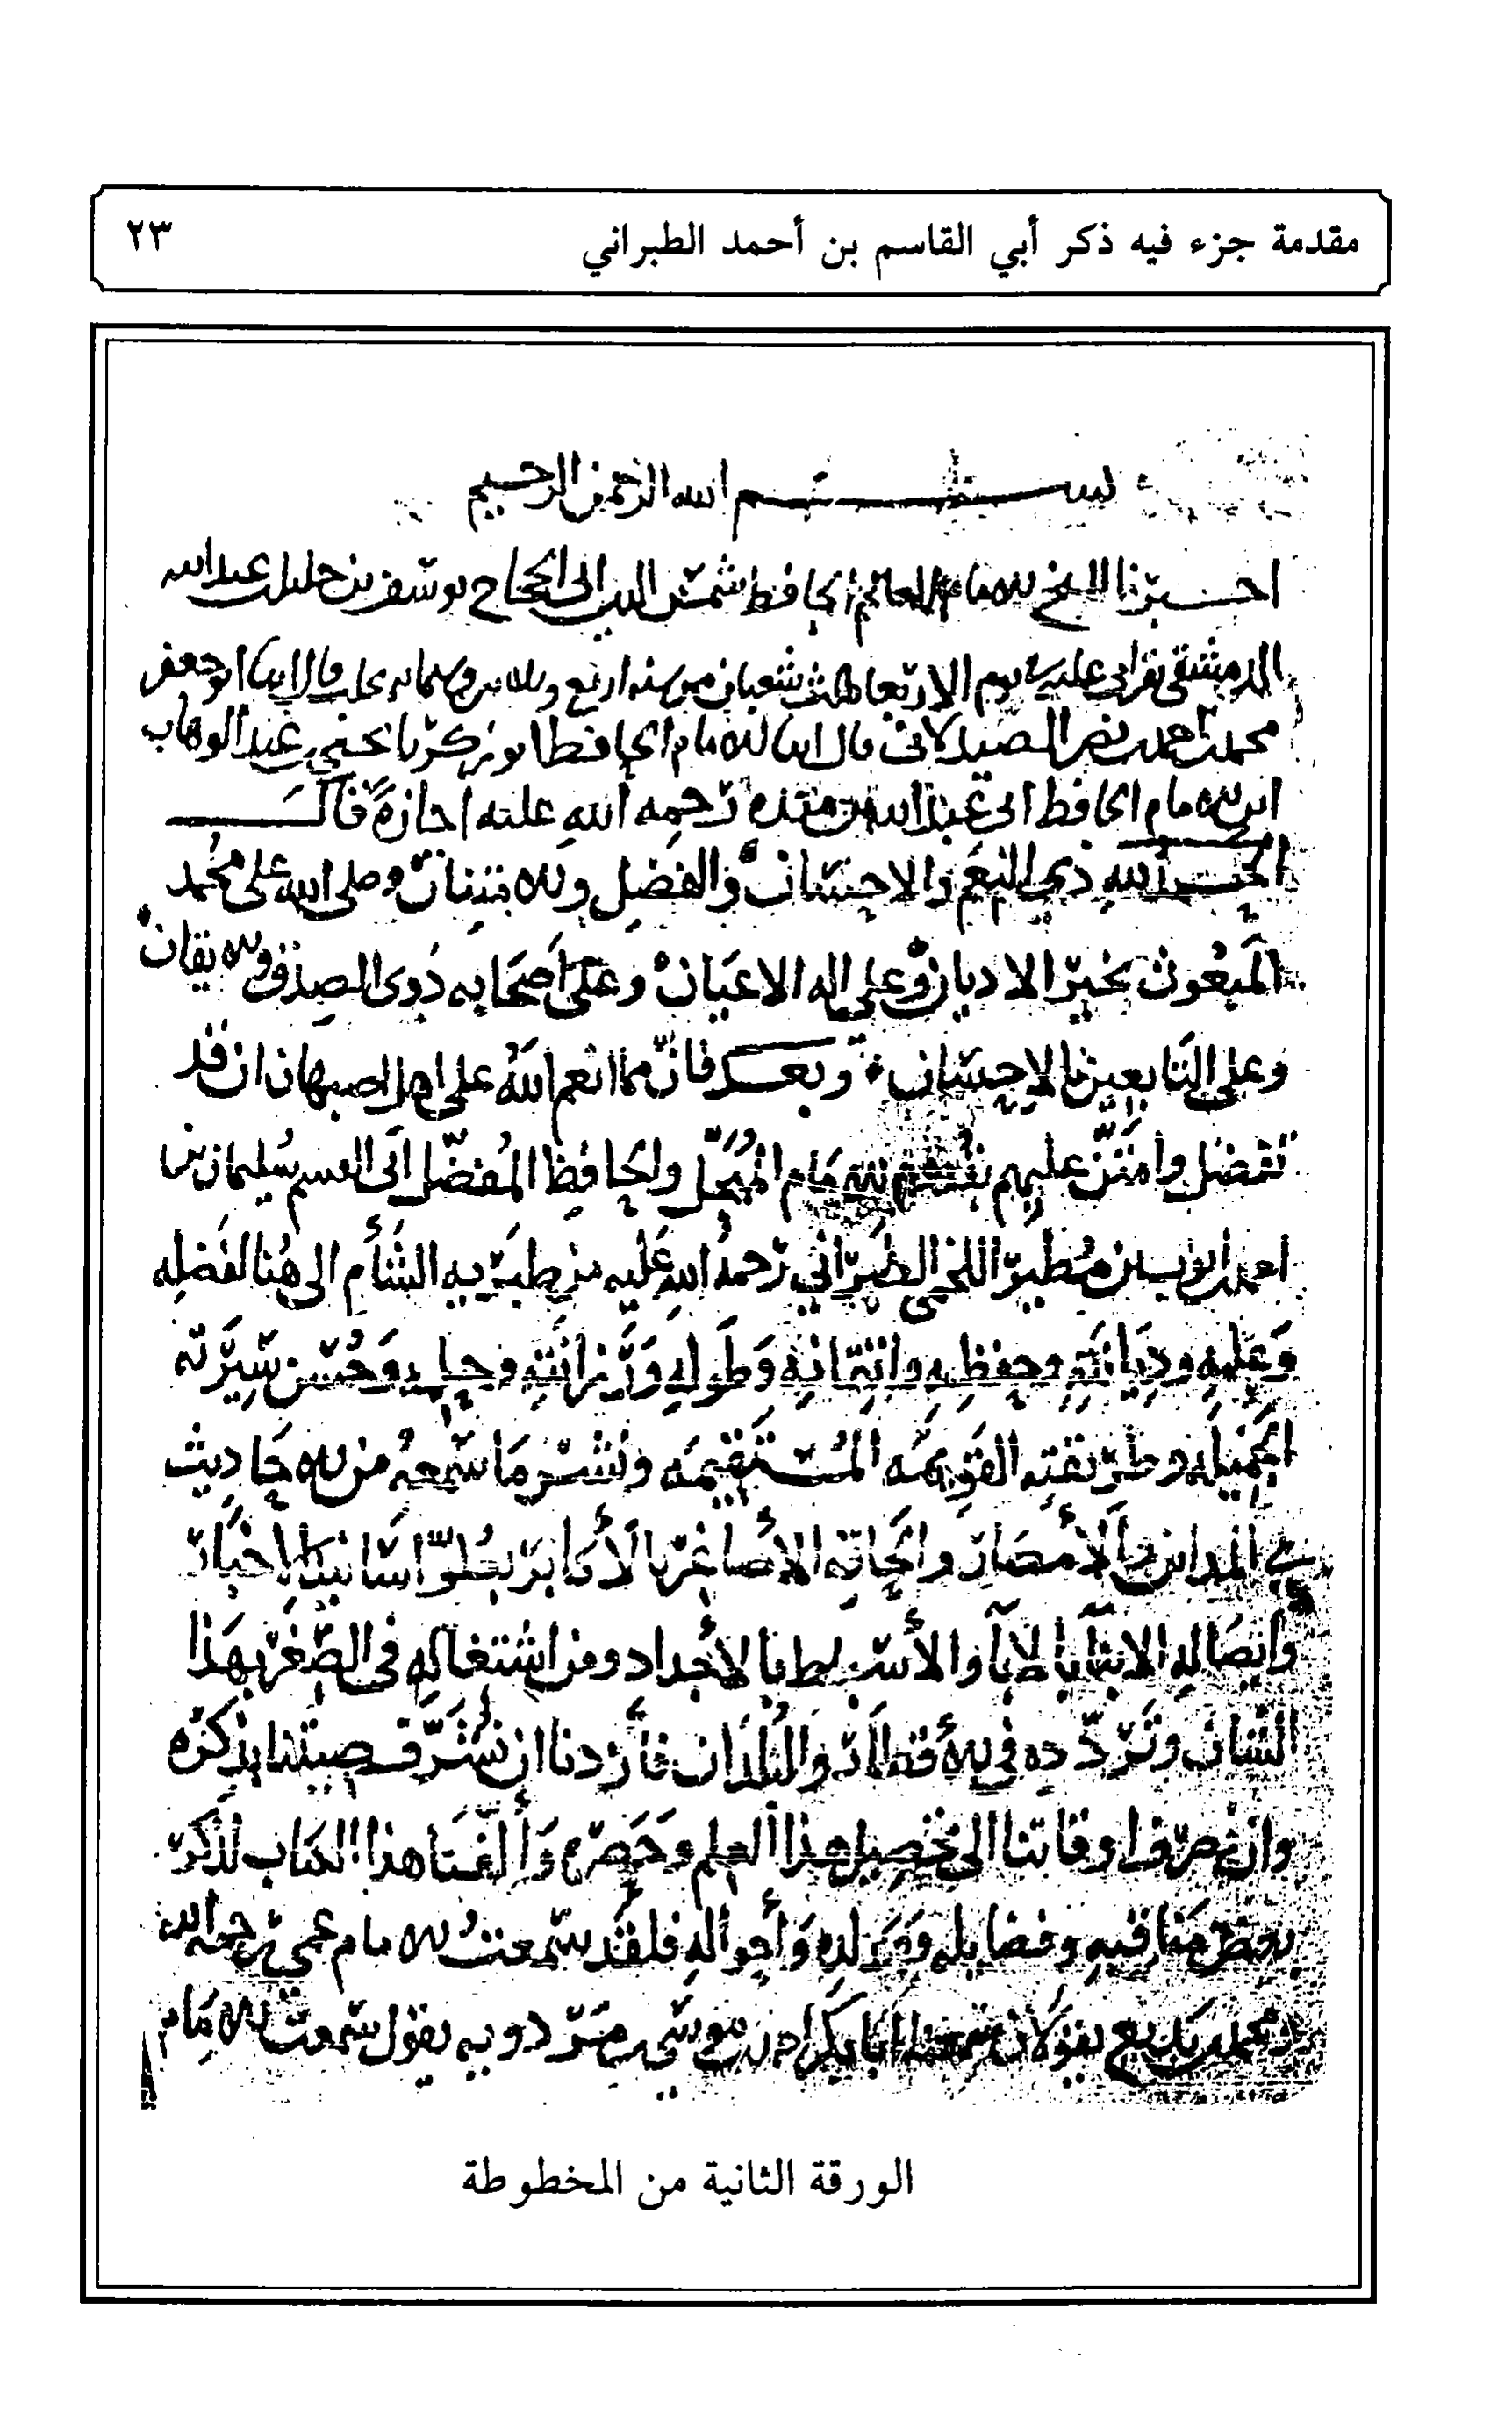 مقدمة جزء فيه ذكر أبي القاسم بن أحمد الطبراني ٢٣
بســـم الله الرحمن الرحيم
اخبرنا الشيخ الامام العالم الحافظ شمس الدين ابى الحجاج يوسف بن خليل بن عبد الله
الدمشقي بقراتي عليه يوم الاربعا ثالث شعبان من سنه اربع وثلاثين وستمائه بحلب قال ابنا ابو جعفر
محمد بن احمد بن نصر الصيدلاني قال ابنا الامام الحافظ ابو زكريا يحيى بن عبد الوهاب
ابن الامام الحافظ ابى عبد الله بن منده رحمه الله عليه اجازة قال
الحمد لله ذي النعم والاحسان والفضل والامتنان وصلى الله على محمد
المبعوث بخير الاديان وعلى اله الاعيان وعلى اصحابه ذوى الصدق والايقان
وعلى التابعين بالاحسان وبعد فان مما انعم الله على اهل اصبهان ان قد
تفضل وامتن عليهم الامام المبجل والحافظ المفضل ابى القسم سليمان بن
احمد بن ايوب بن مطير اللخمي الطبراني رحمة الله عليه من طبرية الشأم الى هنا لفضله
وعلمه وديانته وحفظه واتقانه وطوله ورزانته وحلمه وحسن سيرته
الجميله وطريقته القويمه المستقيمه ونشر ما سمعه من الاحاديث
في المداين والأمصار والحاقه الاصاغر بالأكابر بعلو اسانيد الاخبار
واتصاله الابنا بالابآ والأسباط بالأجداد ومن اشتغاله في الصغر بهذا
الشان وتردده في الأقطار والبلدان فأردنا ان نشرف قصيتنا بذكره
وان نصرف اوقاتنا الى تحصيل هذا العلم وحصره وألفنا هذا الكتاب لذكر
بعض مناقبه وفضايله ومولده وأحواله فلقد سمعت الامام عمي رحمه الله
ومحمد بن بديع يقولان سمعنا ابا بكر احمد بن موسى بن مردويه يقول سمعت الامام
الورقة الثانية من المخطوطة